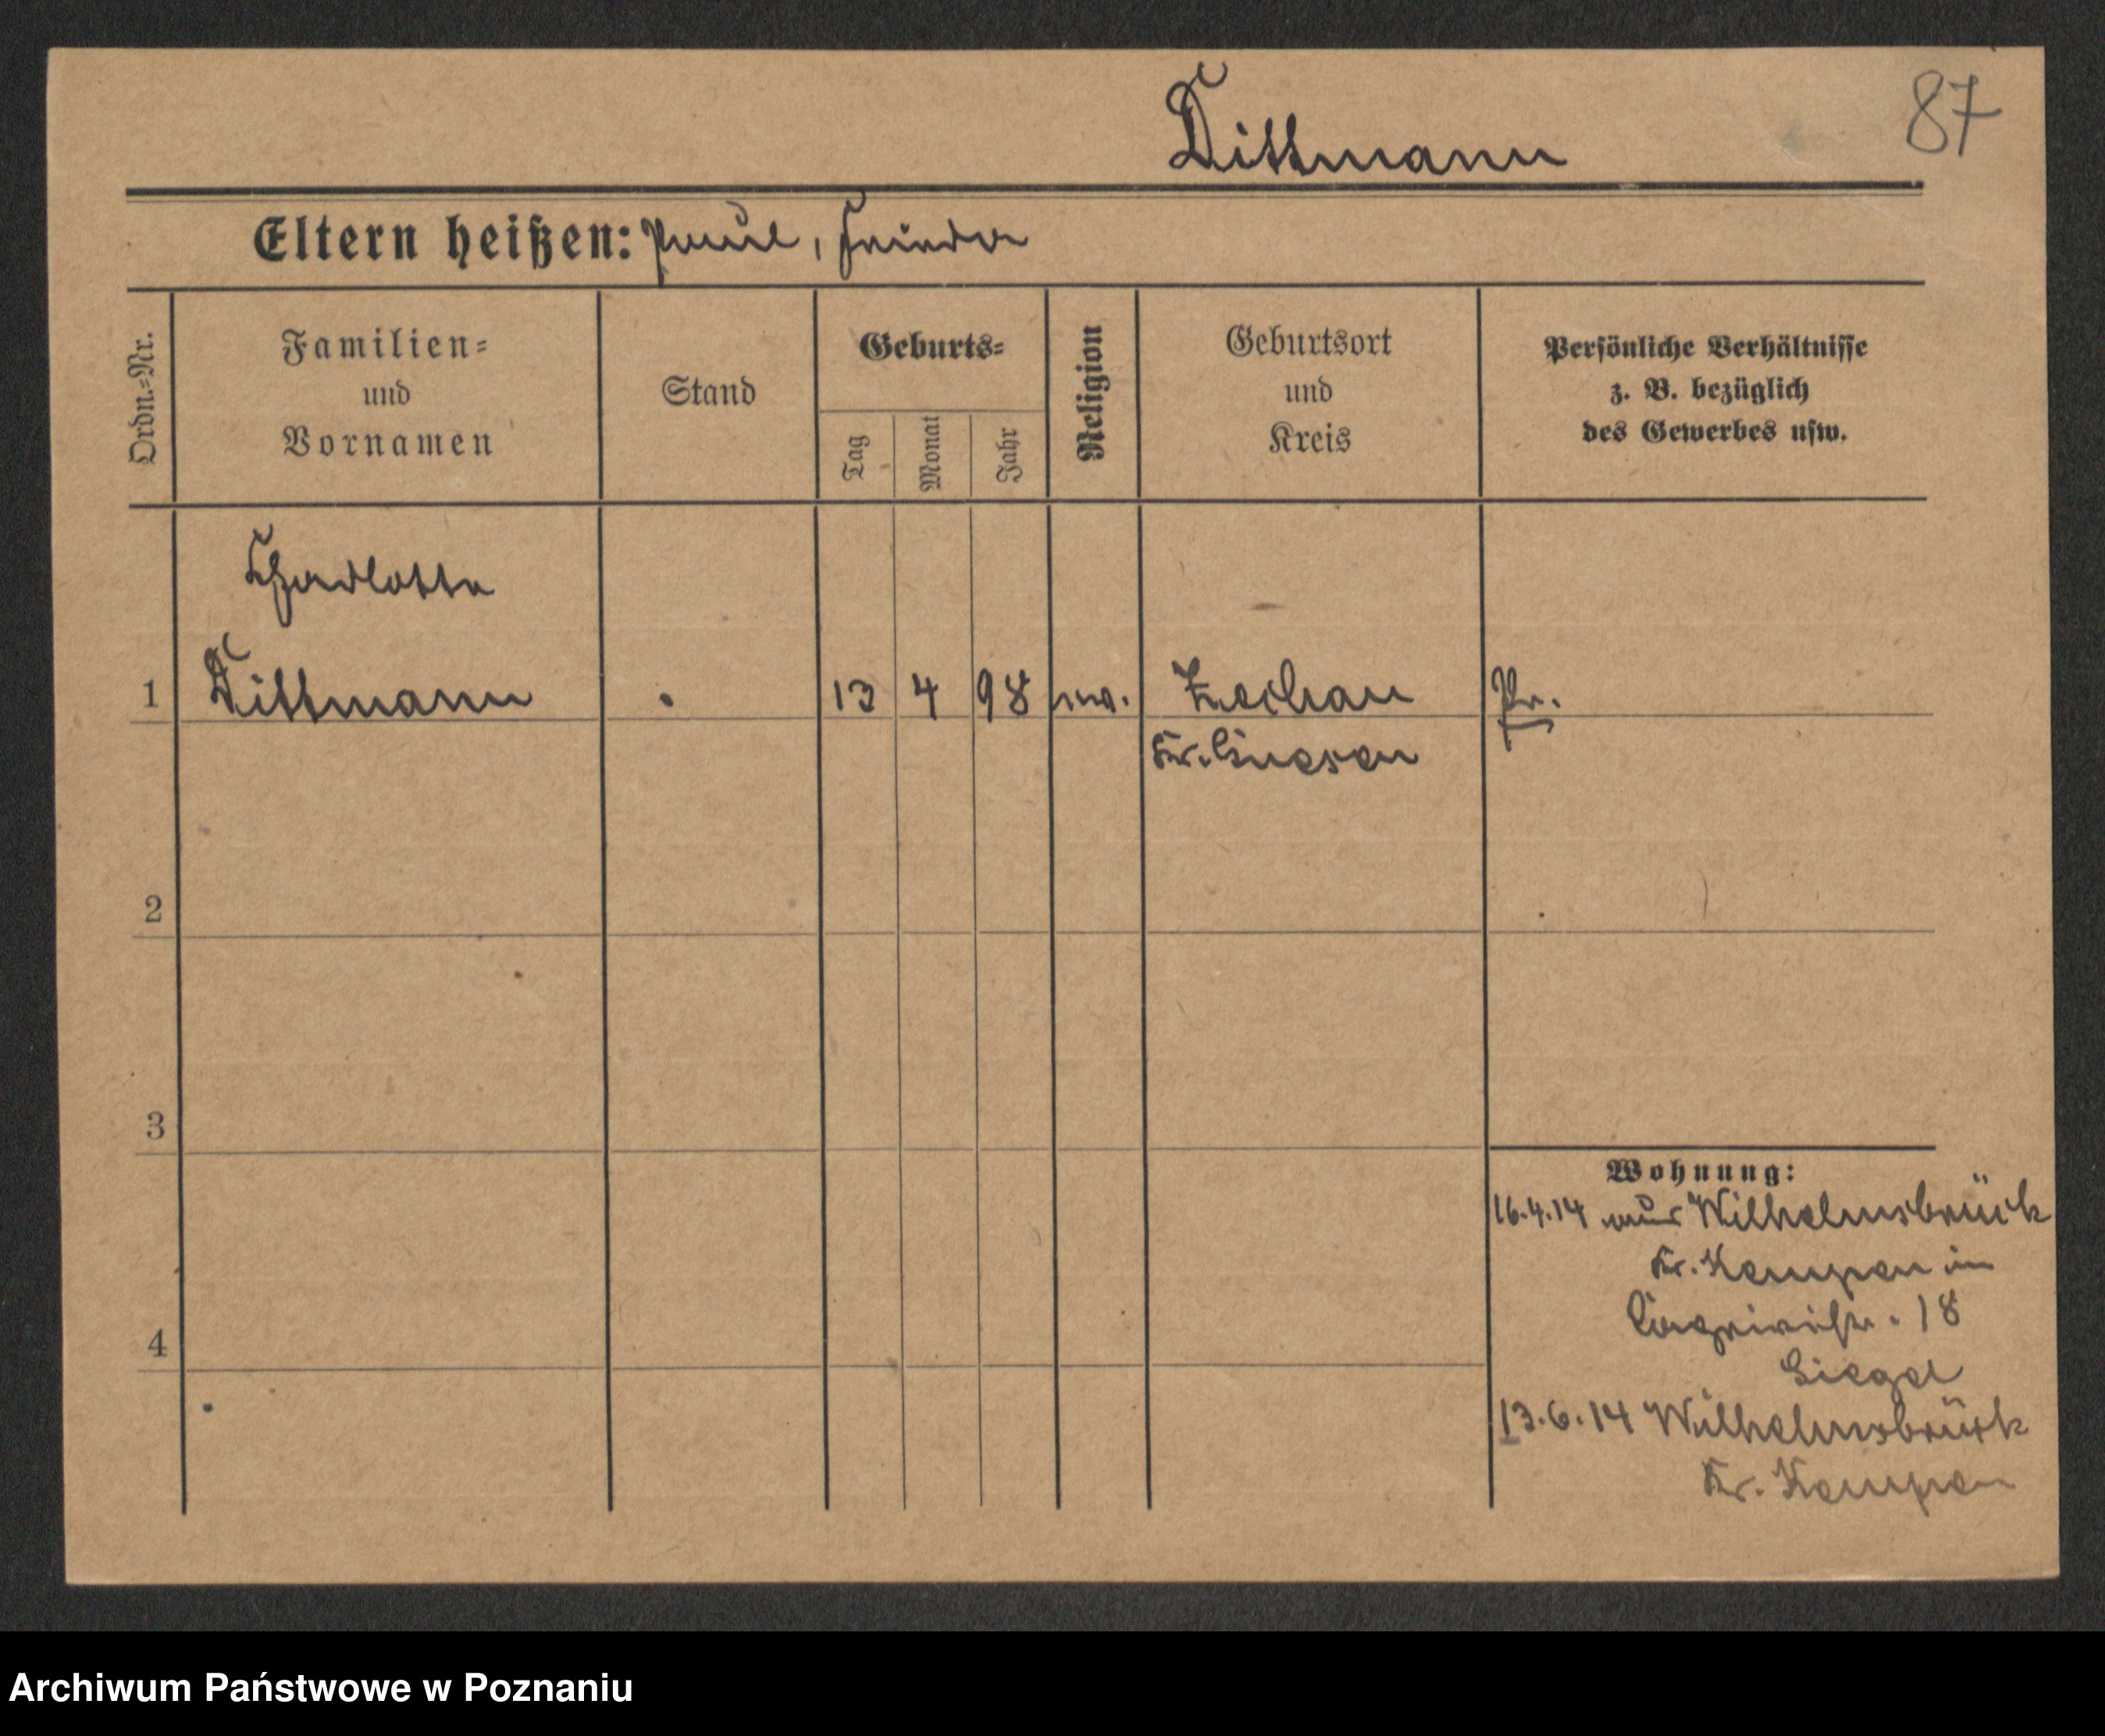 Dittmann
87
Eltern heißen: Paul, Frieda
Ordn.=Nr.
Familien=
und
Vornamen
Stand
Geburts=
Tag
Monat
Jahr
Religion
Geburtsort
und
Kreis
Persönliche Verhältnisse
z. B. bezüglich
des Gewerbes usw.
Charlotte
1 Dittmann 13 4 98 Zechau Pr.
Kr. Gnesen
2
3
Wohnung:
16.4.14 aus Wilhelmsbrück
Kr. Kempen in
18
4
Siegel
13.6.14 Wilhelmsbrück
Kr. Kempen
Archiwum Państwowe w Poznaniu